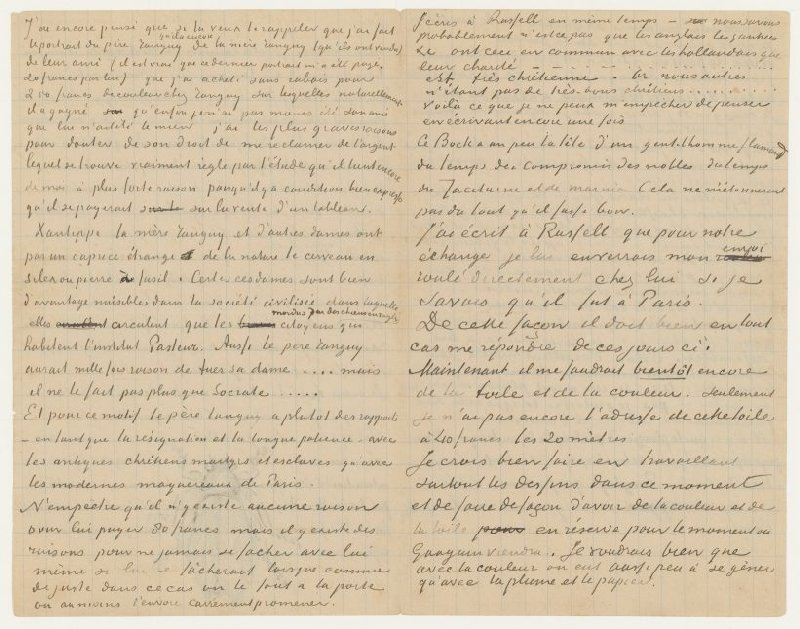 J'ai encore pensé que si tu veux te rappeler que j'ai fait
le portrait du père Tanguy qu'il a encore de la mère Tanguy (qu'ils ont vendu)
de leur ami (il est vrai que ce dernier portrait m'a été payé
20 francs par lui) que j'ai acheté sans rabais pour
250 francs de couleur chez Tanguy sur lesquelles naturellement
il a gagné qu'enfin je n'ai pas moins été son ami
que lui n'a été le mien j'ai les plus graves raisons
pour douter de son droit de me réclamer de l'argent
lequel se trouve vraiment réglé par l'étude qu'il tient encore
de moi à plus forte raison parcequ'il y a condition bien expresse
qu'il se payerait sur la vente d'un tableau.
Xantippe la mère Tanguy et d'autres dames ont
par un caprice étrange de la nature le cerveau en
silex ou pierre à fusil. Certes ces dames sont bien
d'avantage nuisibles dans la société civilisée dans laquelle
elles circulent que les citoyens mordus par des chiens enragés qui
habitent l'institut Pasteur. Aussi le père Tanguy
aurait mille fois raison de tuer sa dame .... mais
il ne le fait pas plus que Socrate .....
Et pour ce motif le père Tanguy a plutôt des rapports
– en tant que la résignation et la longue patience – avec
les antiques chrétiens martyrs et esclaves qu'avec
les modernes maquereaux de Paris.
N'empêche qu'il n'y existe aucune raison
pour lui payer 80 francs mais il y existe des
raisons pour ne jamais se facher avec lui
même si lui se fâcherait lorsque comme
de juste dans ce cas on le fout à la porte
ou au moins l'envoie carrement promener.
J'écris à Russell en même temps – nous savons
probablement n'est ce pas que les anglais les yankees
&c ont ceci en commun avec les hollandais que
leur charité – – – ........
est très chrétienne. Or nous autres
n'étant pas de très bons chrétiens........
Voilà ce que je ne peux m'empêcher de penser
en écrivant encore une fois
Ce Bock a un peu la tête d'un gentilhomme flamand
du temps du Compromis des nobles du temps
du Taciturne et de Marnix Cela ne m'étonnerait
pas du tout qu'il fasse bon.
J'ai écrit à Russell que pour notre
échange je lui enverrais mon envoi
roulé directement chez lui si je
savais qu'il fut à Paris.
De cette façon il doit bien en tout
cas me répondre de ces jours ci.
Maintenant il me faudrait bientôt encore
de la toile et de la couleur. Seulement
je n'ai pas encore l'adresse de cette toile
à 40 francs les 20 mètres.
Je crois bien faire en travaillant
surtout les dessins dans ce moment
et de faire de façon d'avoir de la couleur et de
la toile en réserve pour le moment où
Gauguin viendra. Je voudrais bien que
avec la couleur on eut aussi peu à se gêner
qu'avec la plume et le papier.